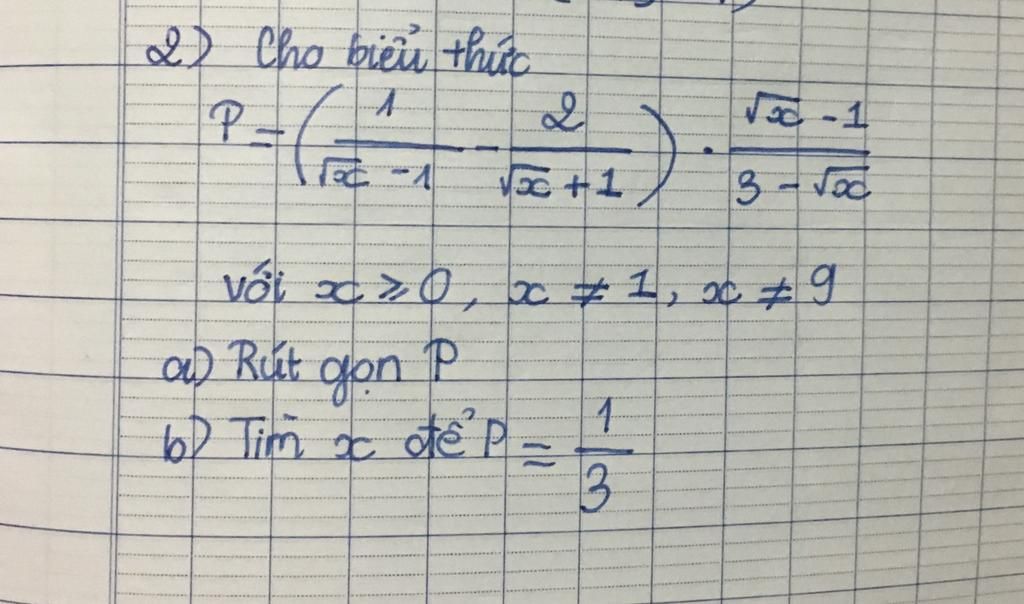 2) Cho biểu thức
P = ( 1/(√x - 1) - 2/(√x + 1) ) . (√x - 1)/(3 - √x)
với x ≥ 0, x ≠ 1, x ≠ 9
a) Rút gọn P
b) Tìm x để P = 1/3